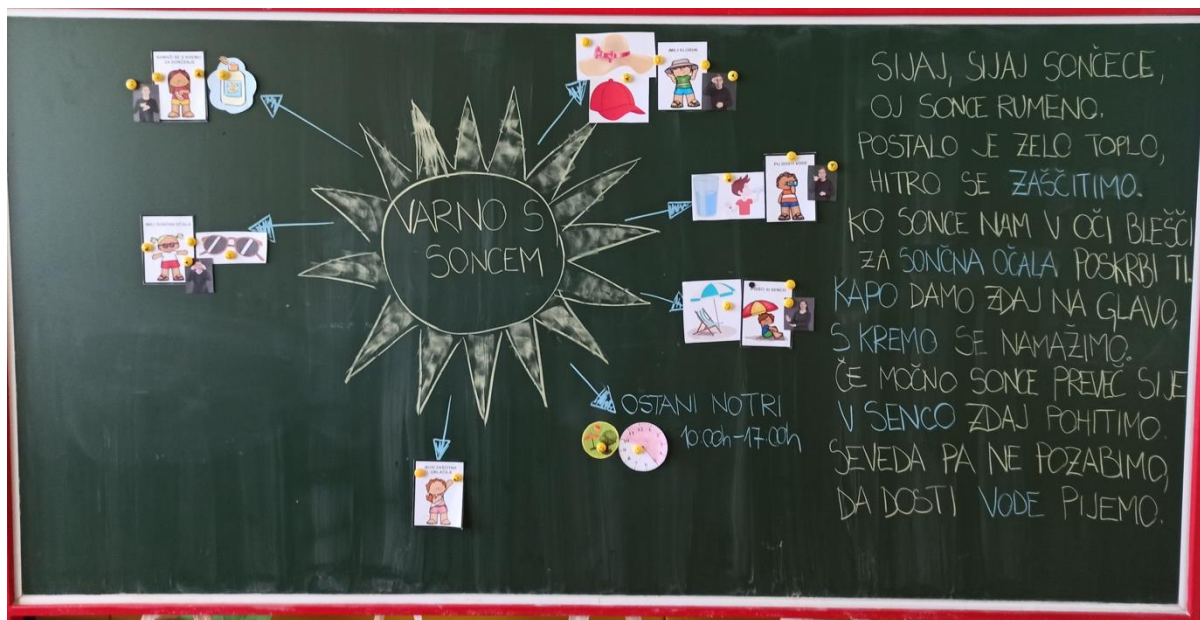 NAMAŽI SE S KREMO
ZA SONČENJE
IMEJ KLOBUK
VARNO S
SONCEM
PIJ DOSTI VODE
IMEJ SONČNA OČALA
OSTANI NOTRI
10.00h-17.00h
SIJAJ, SIJAJ SONČECE,
OJ SONCE RUMENO.
POSTALO JE ZELO TOPLO,
HITRO SE ZAŠČITIMO.
KO SONCE NAM V OČI BLEŠČI
ZA SONČNA OČALA POSKRBI TI.
KAPO DAMO ZDAJ NA GLAVO,
S KREMO SE NAMAŽIMO.
ČE MOČNO SONCE PREVEČ SIJE
V SENCO ZDAJ POHITIMO.
SEVEDA PA NE POZABIMO,
DA DOSTI VODE PIJEMO.